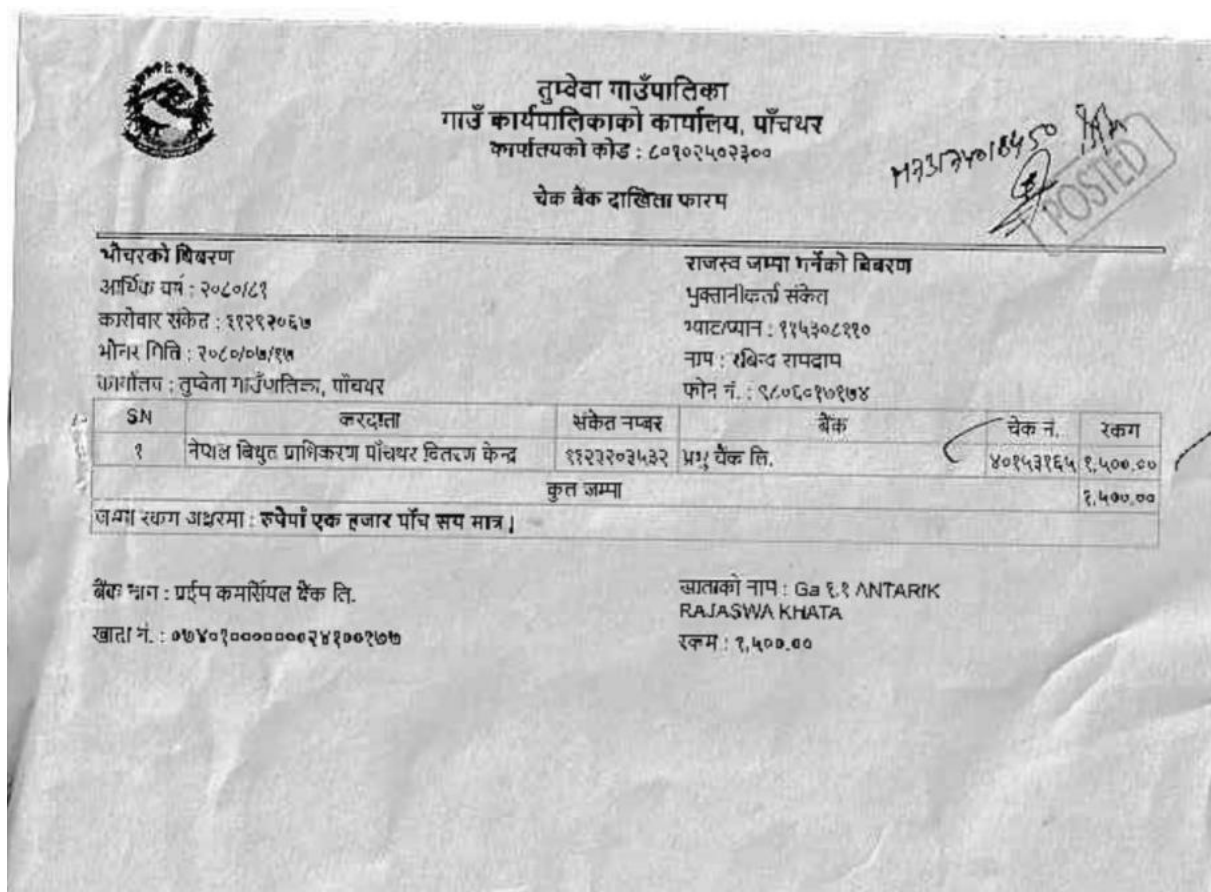 तुम्वेवा गाउँपालिका
गाउँ कार्यपालिकाको कार्यालय, पाँचथर
कार्यालयको कोड : ८०१०२५०२३००
चेक बैंक दाखिला फारम
POSTED
भौचरको बिबरण
आर्थिक वर्ष : २०८०/८१
कारोवार संकेत : ११२९२०६७
भौचर मिति : २०८०/०७/१७
कार्यालय : तुम्वेवा गाउँपालिका, पाँचथर
राजस्व जम्मा गर्नेको बिबरण
भुक्तानीकर्ता संकेत
भ्याट/प्यान : ११५३०८११०
नाम : रबिन्द्र रामदाम
फोन नं. : ९८०६०१७१७४
SN करदाता संकेत नम्बर बैंक चेक नं. रकम
१ नेपाल बिधुत प्राधिकरण पाँचथर वितरण केन्द्र ११२२२०३५३२ प्रभु बैंक लि. ४०१५३१६५ १,५००.००
कुल जम्मा १,५००.००
जम्मा रकम अक्षरमा : रुपैयाँ एक हजार पाँच सय मात्र |
बैंक नाम : प्राईम कमर्सियल बैंक लि.
खाता नं. : ०७४०१०००००००२४१००१७७
खाताको नाम : Ga १.१ ANTARIK
RAJASWA KHATA
रकम : १,५००.००